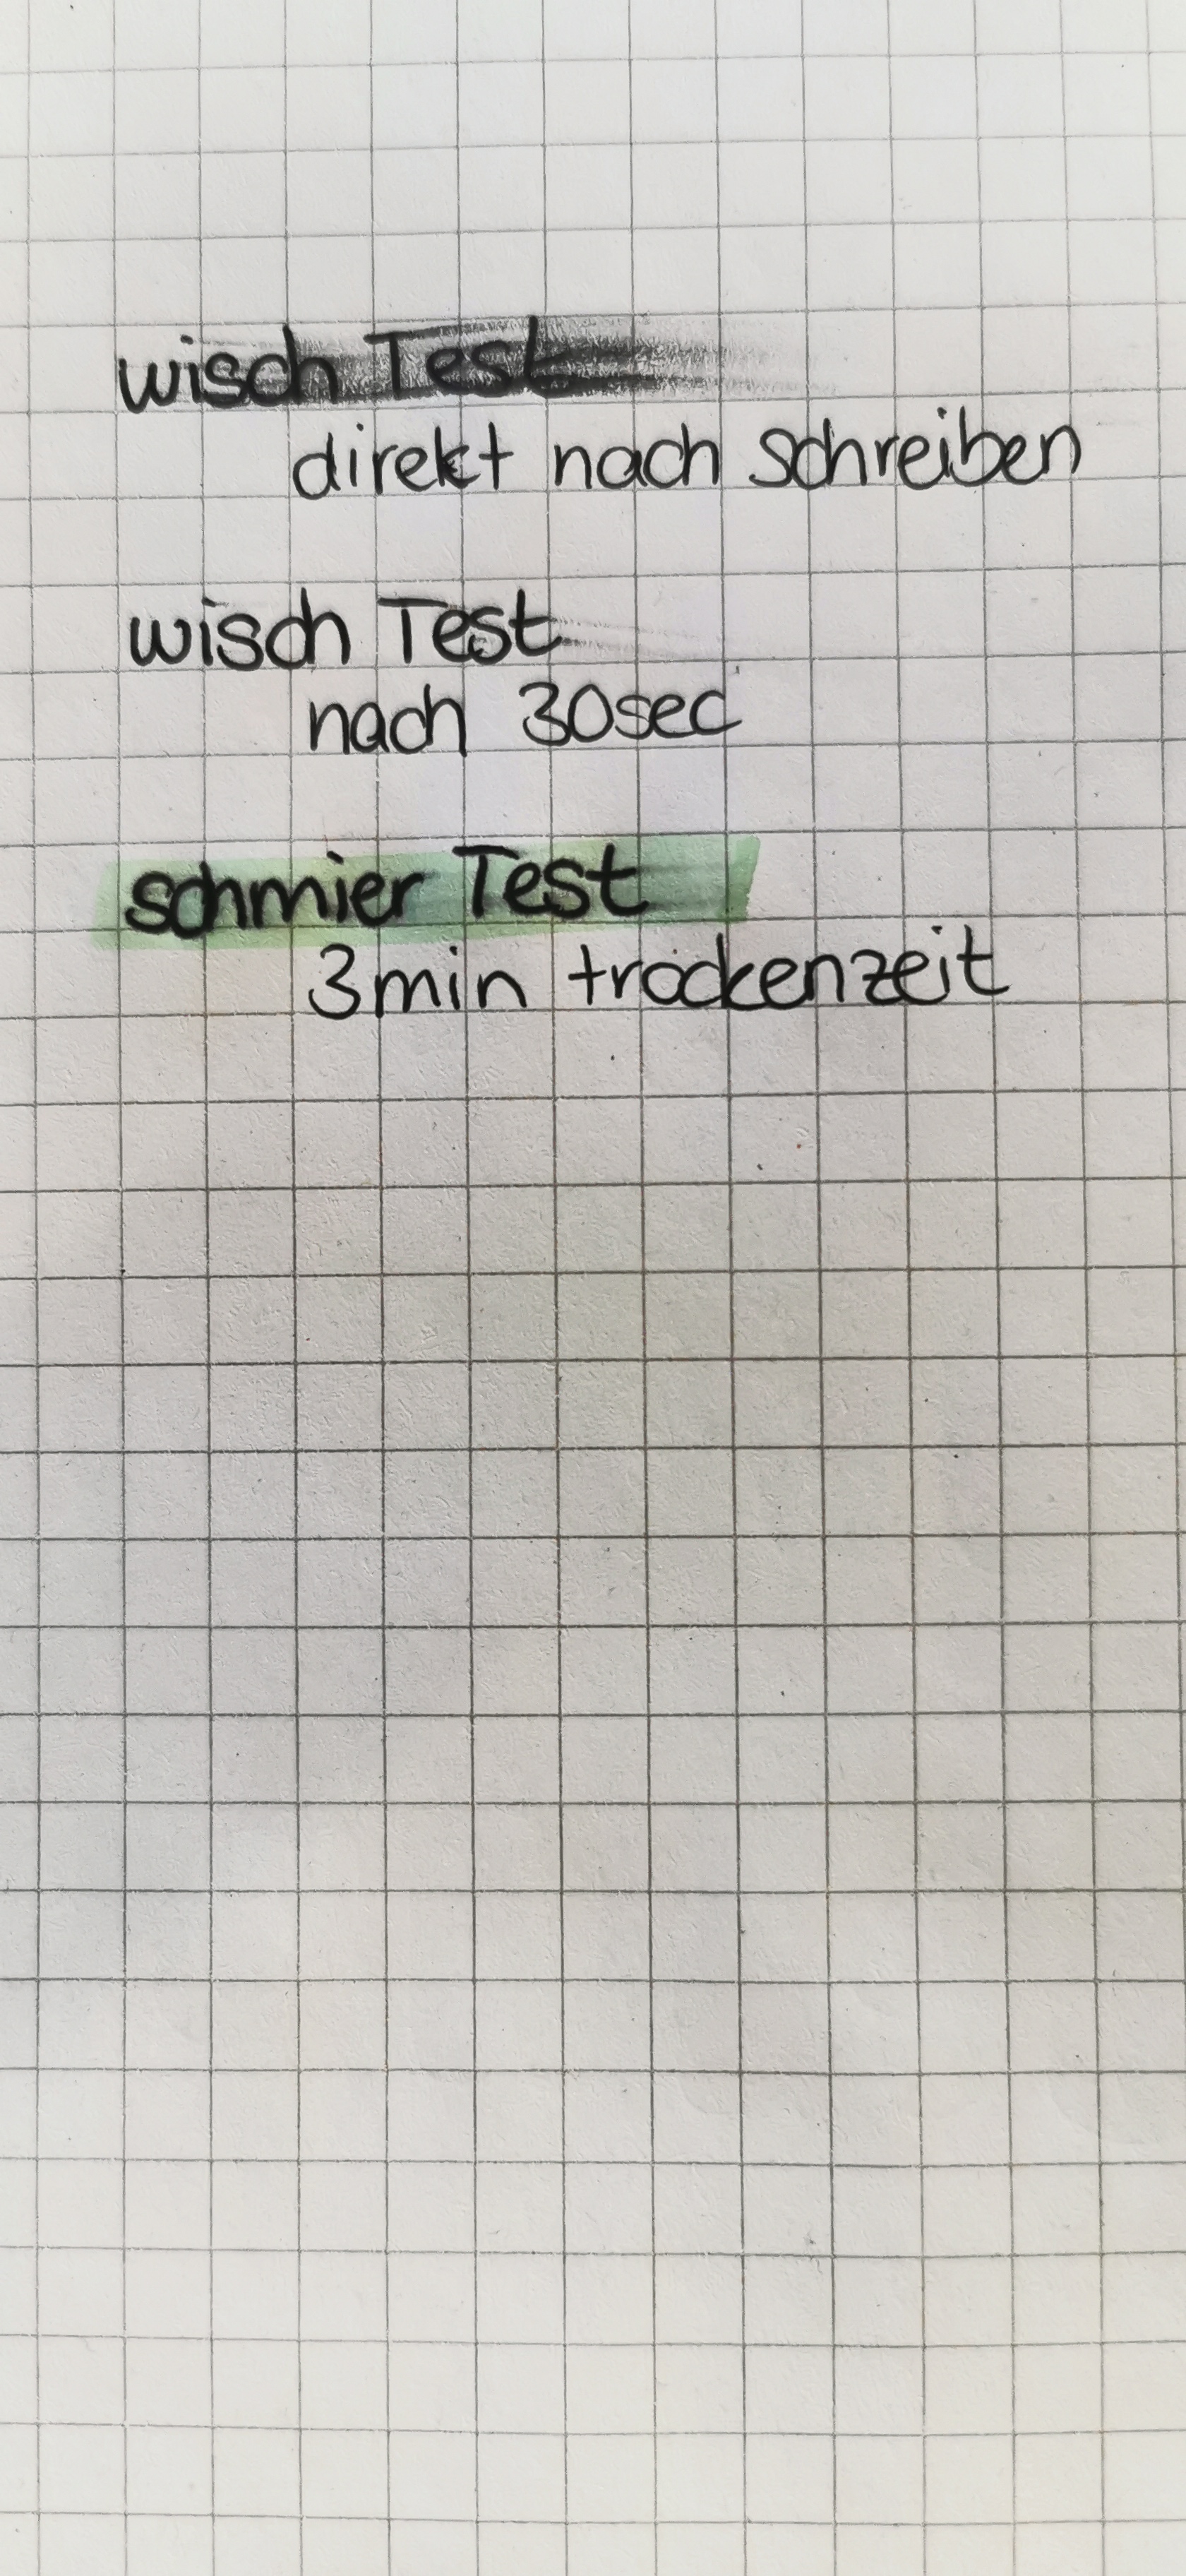 wisch Test
direkt nach schreiben
wisch Test
nach 30sec
schmier Test
3min trockenzeit